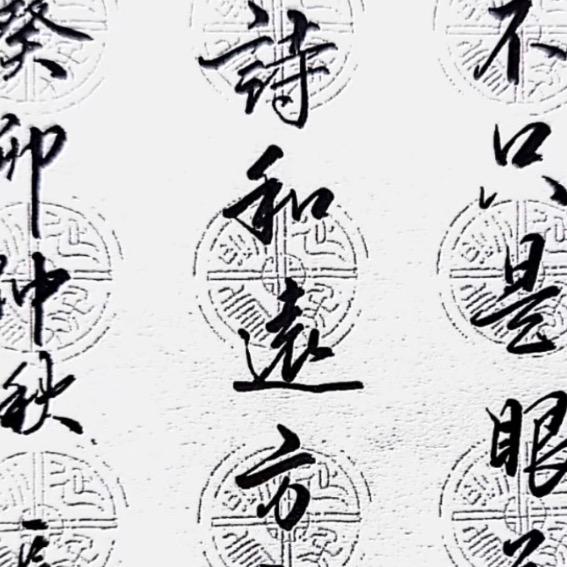 不只是眼前
詩和遠方
癸卯仲秋